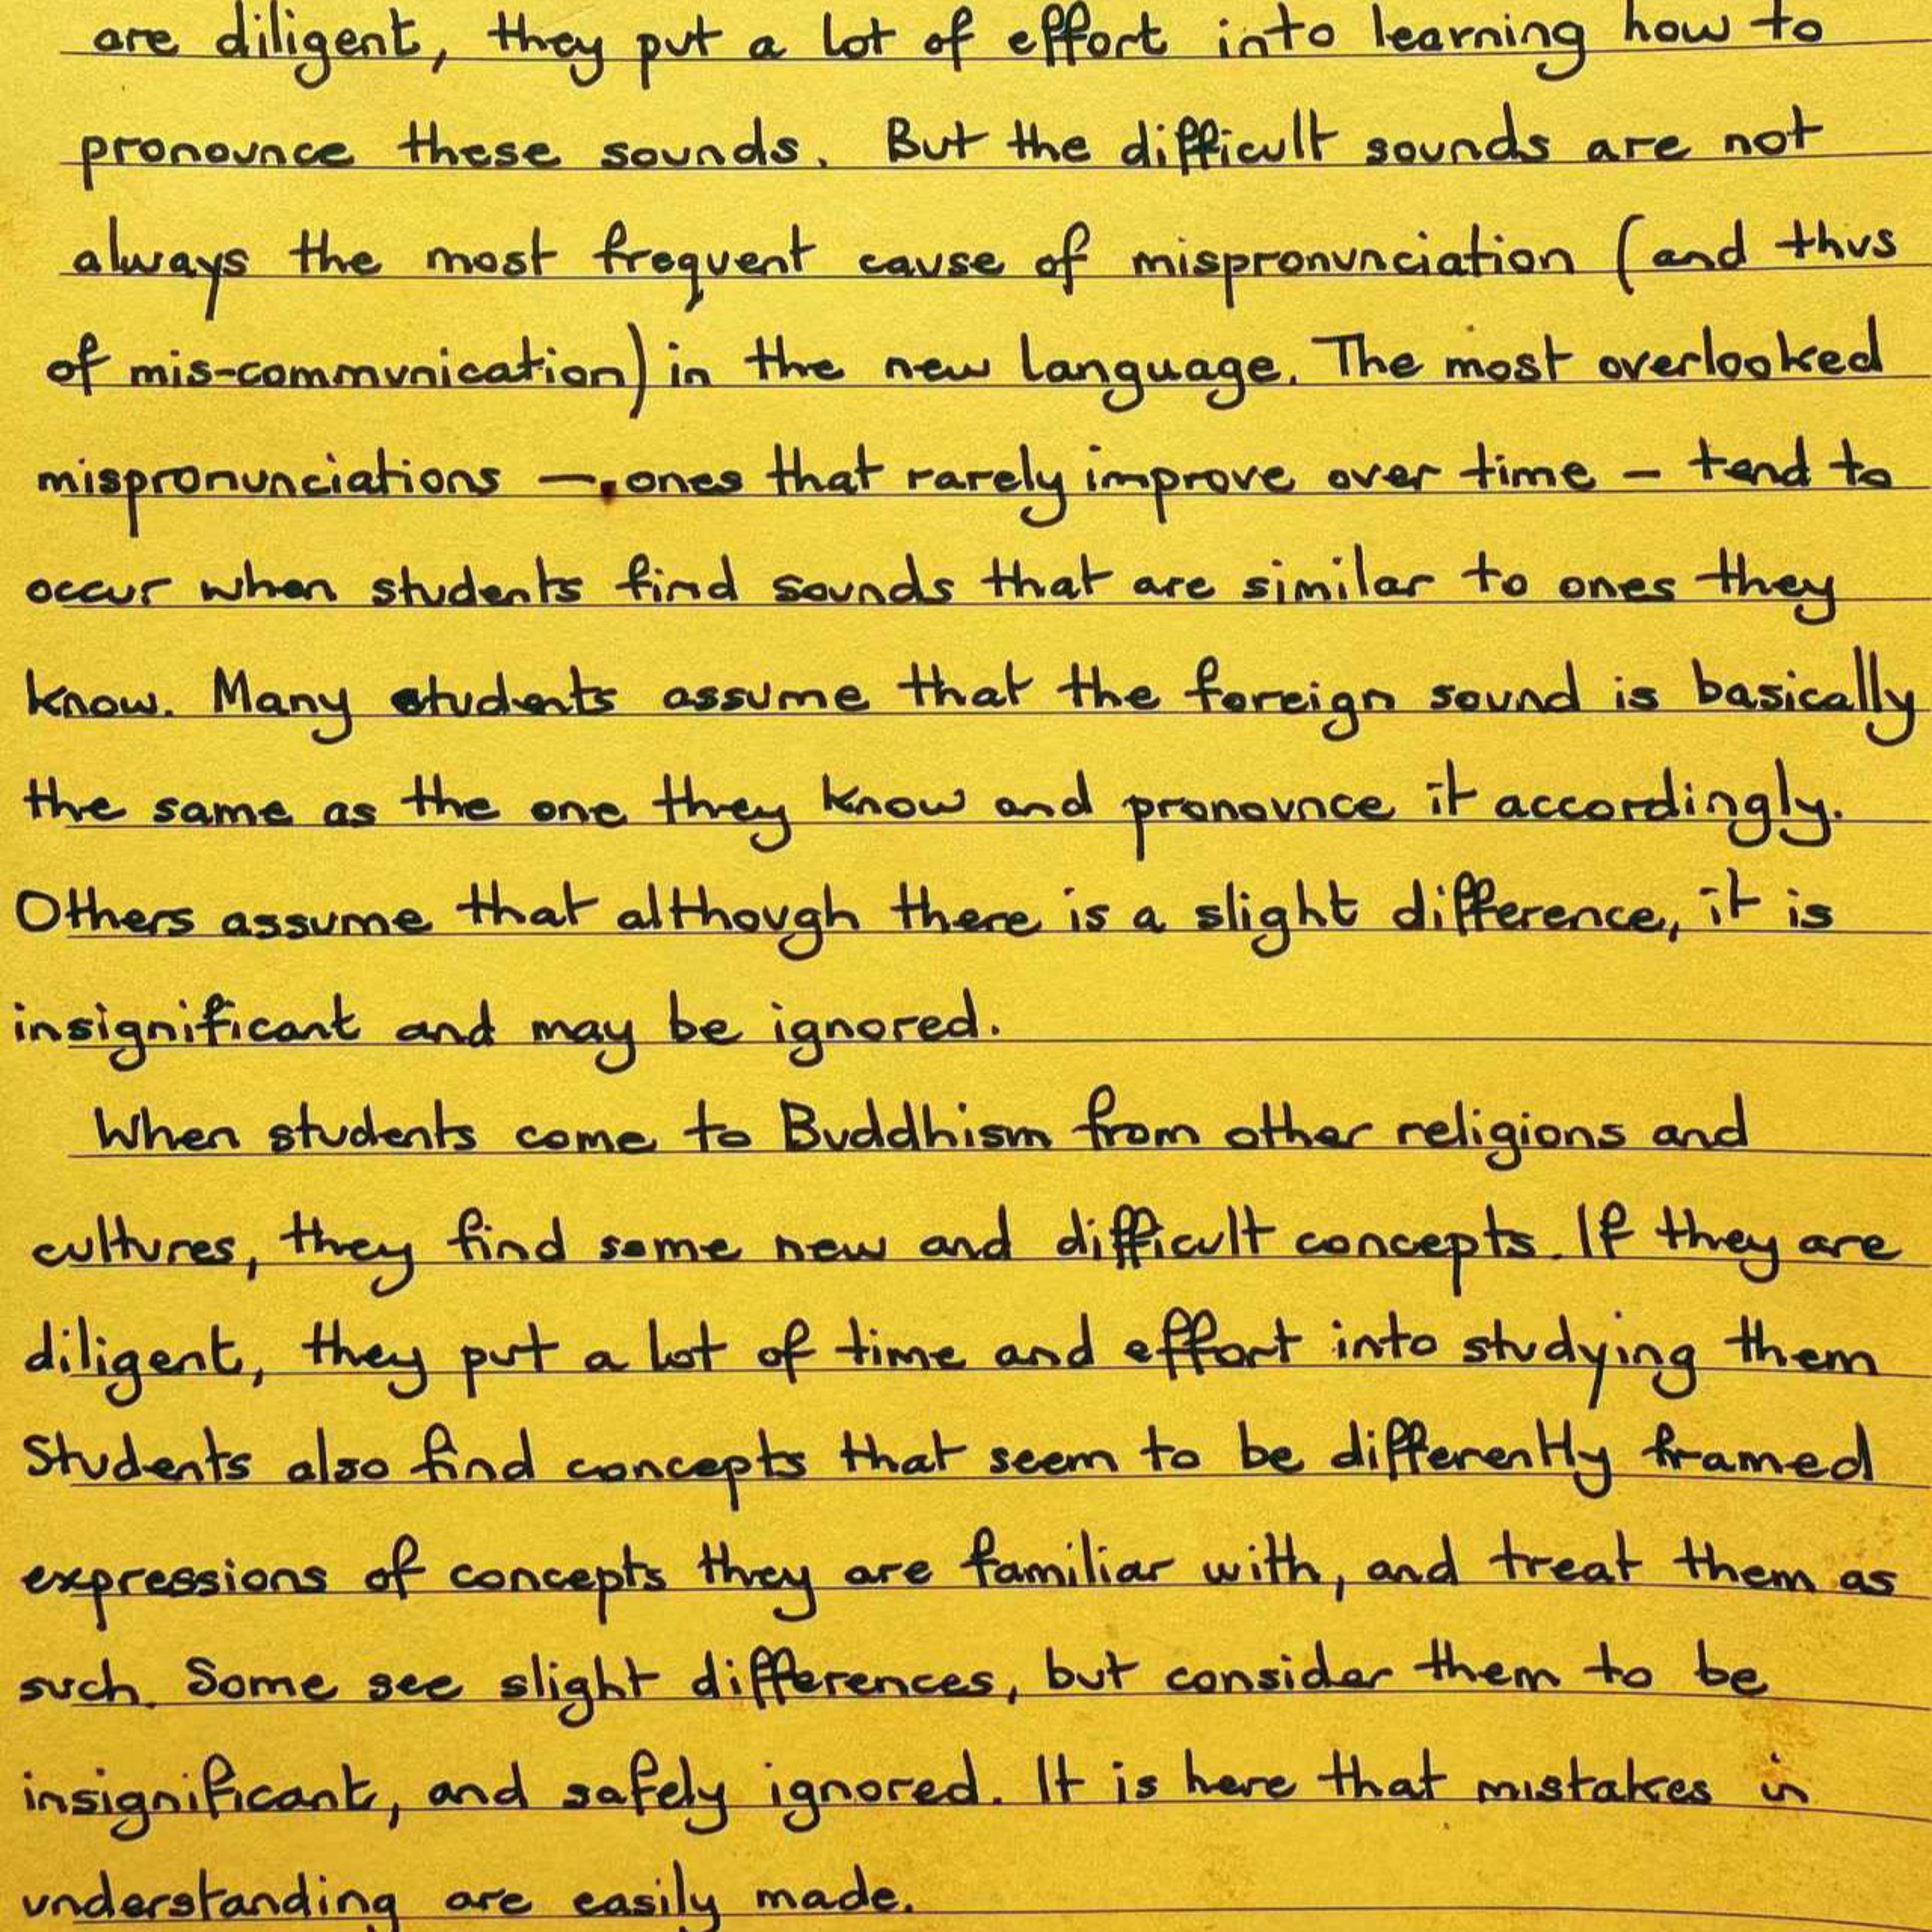 are diligent, they put a lot of effort into learning how to
pronounce these sounds. But the difficult sounds are not
always the most frequent cause of mispronunciation (and thus
of mis-communication) in the new language. The most overlooked
mispronunciations — ones that rarely improve over time – tend to
occur when students find sounds that are similar to ones they
know. Many students assume that the foreign sound is basically
the same as the one they know and pronounce it accordingly.
Others assume that although there is a slight difference, it is
insignificant and may be ignored.
When students come to Buddhism from other religions and
cultures, they find some new and difficult concepts. If they are
diligent, they put a lot of time and effort into studying them
Students also find concepts that seem to be differently framed
expressions of concepts they are familiar with, and treat them as
such. Some see slight differences, but consider them to be
insignificant, and safely ignored. It is here that mistakes in
understanding are easily made.